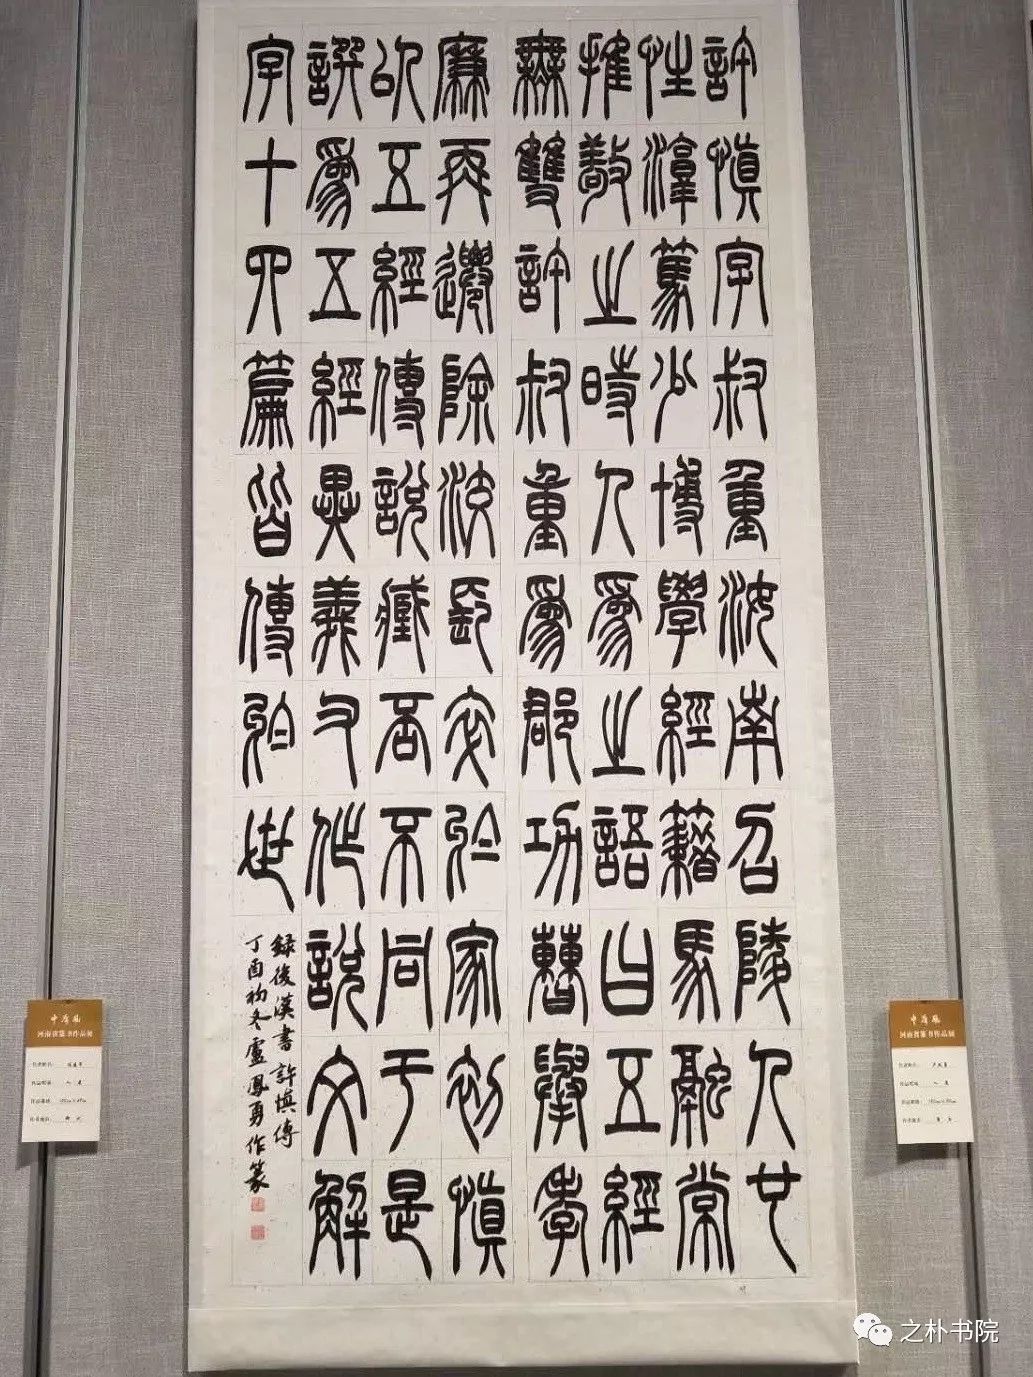 許慎字叔重汝南召陵人也
性淳篤少博學經籍馬融常
推敬之時人爲之語曰五經
無雙許叔重爲郡功曹舉孝
廉再遷除洨長卒於家初慎
以五經傳說臧否不同于是
譔爲五經異義又作說文解
字十四篇皆傳於世
錄後漢書許慎傳
丁酉初冬盧鳳勇作篆
中原风
河南省篆书作品展
中原风
河南省篆书作品展
之朴书院